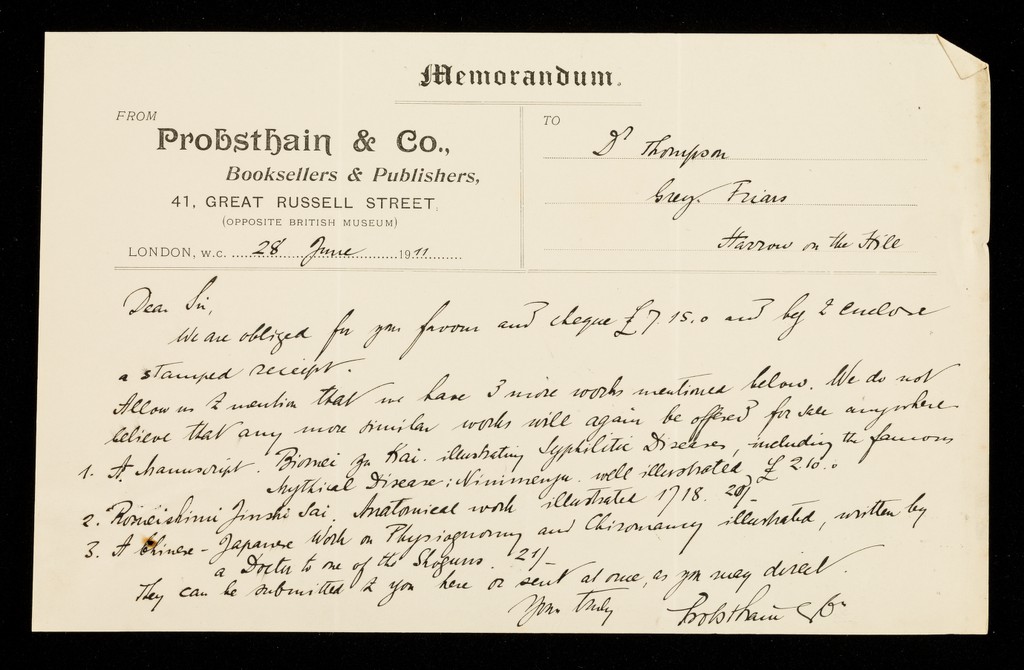 Memorandum.
FROM
Probsthain & Co.,
Booksellers & Publishers,
41, GREAT RUSSELL STREET
(OPPOSITE BRITISH MUSEUM)
LONDON, W.C. 28 June 1911
TO
Dr Thompson
Grey Friars
Harrow on the Hill
Dear Sir,
We are obliged for your favour and cheque £7.15.0 and beg to enclose
a stamped receipt.
Allow us to mention that we have 3 more works mentioned below. We do not
believe that any more similar works will again be offered for sale anywhere
1. A Manuscript. Biomei zu Kai. illustrating Syphilitic Diseases, including the famous
Mythical Disease: Ninmenzu. well illustrated £2.10.0
2. Jinshi Sai. Anatomical work illustrated 1718. 20/-
3. A Chinese-Japanese Work on Physiognomy and Chiromancy illustrated, written by
a Doctor to one of the Shoguns. 21/-
They can be submitted to you here or sent at once, as you may direct.
Yours truly
Probsthain & Co